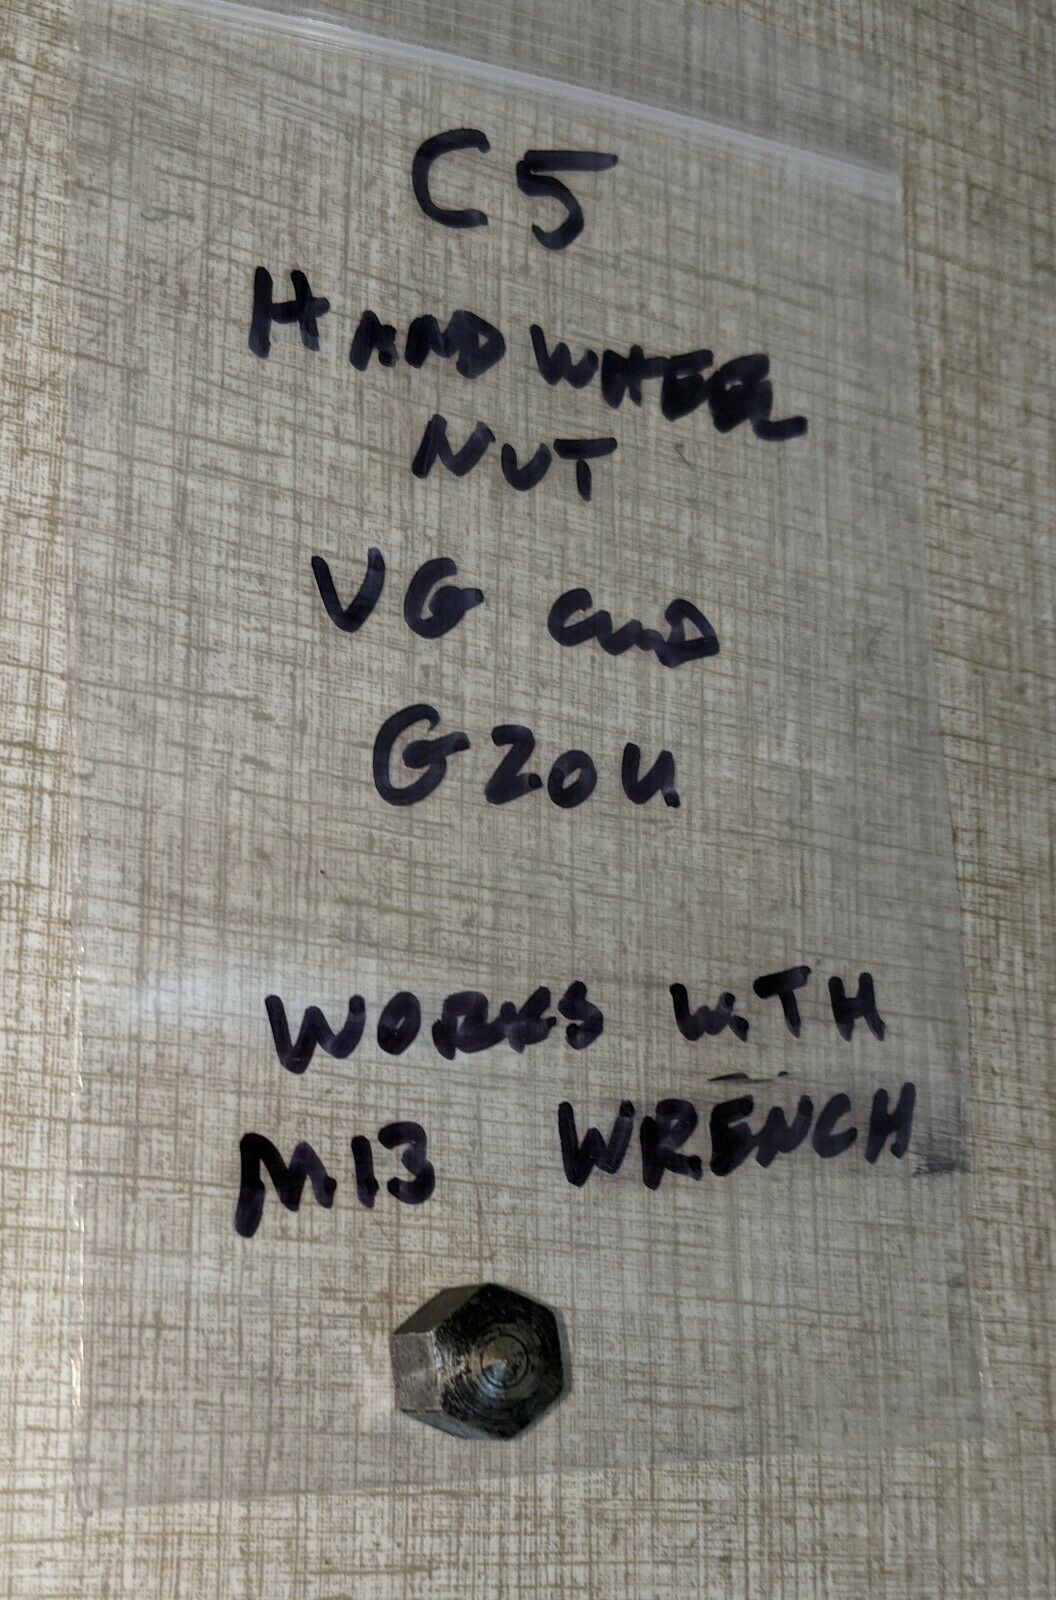 C5
HANDWHEEL
NUT
VG and
G20U
WORKS WiTH
M13 WRENCH